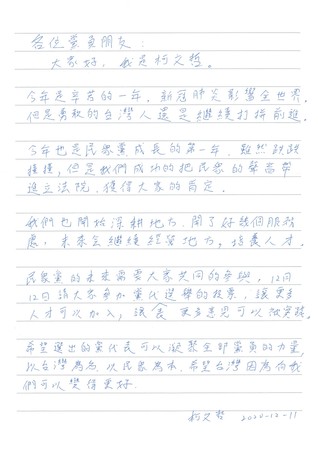 各位黨員朋友：
大家好，我是柯文哲。
今年是辛苦的一年，新冠肺炎影響全世界，
但是勇敢的台灣人還是繼續打拼前進。
今年也是民眾黨成長的第一年，雖然跌跌
撞撞，但是我們成功的把民眾的聲音帶
進立法院，獲得大家的肯定。
我們也開始深耕地方，開了好幾個服務
處，未來會繼續經營地方，培養人才。
民眾黨的未來需要大家共同的參與，12月
12日請大家參加黨代選舉的投票，讓更多
人才可以加入，讓 更多意見可以被實踐。
希望選出的黨代表可以凝聚全部黨員的力量，
以台灣為名，以民眾為本，希望台灣因為有我
們可以變得更好。
柯文哲 2020-12-11